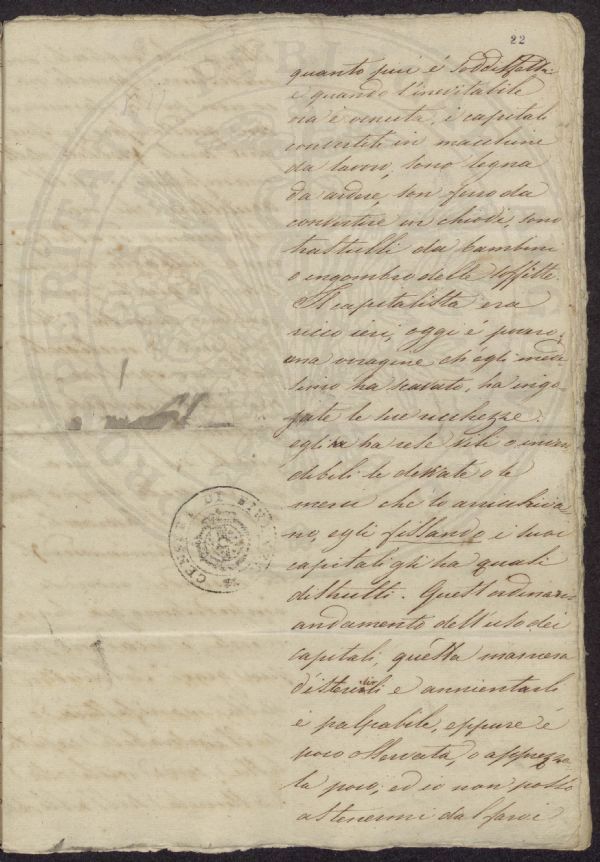 22
quanto piú é soddisfatta
e quando l'inevitabile
ria é venuta, i capitali
convertiti in macchine
da lavoro, sono legna
da ardere, son ferro da
convertire in chiodi, sono
trastulli da bambini
o ingombro delle soffitte.
Il capitalista era
ricco ieri, oggi é povero,
una voragine ch'egli mede
simo ha scavato, ha ingo
jate le sue ricchezze.
egli ha rese vili o inven
dibili le derrate o le
merci che lo arricchiva
no, egli fissando i suoi
capitali gli ha quasi
distrutti. Quest'ordinario
andamento dell'uso dei
capitali, questa maniera
d'isterilirli e annientarli
é palpabile, eppure é
poco osservata, o apprezza
ta poco, ed io non posso
astenermi dal farvi
CENSURA DI